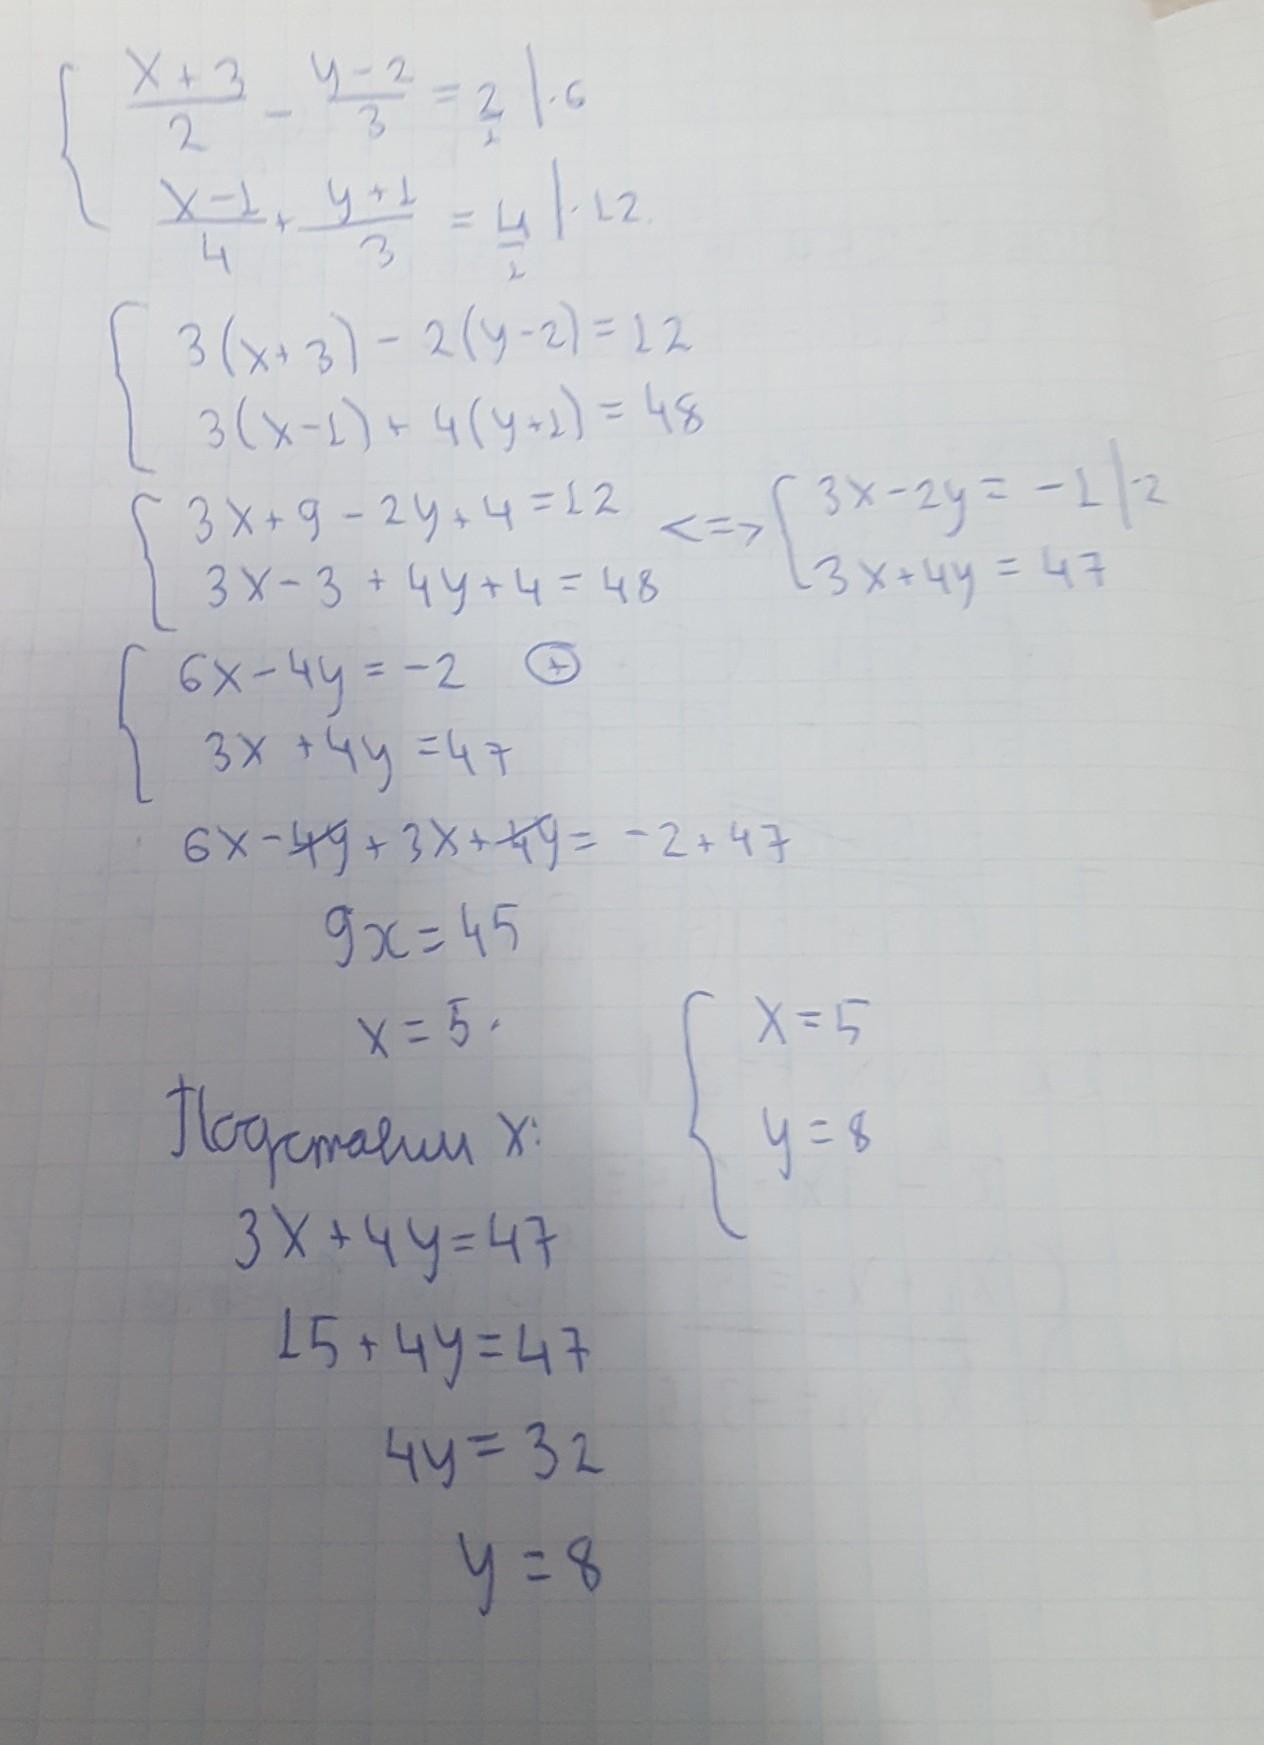 { (x+3)/2 - (y-2)/3 = 2/1 | ·6
(x-1)/4 + (y+1)/3 = 4/1 | ·12
{ 3(x+3) - 2(y-2) = 12
3(x-1) + 4(y+1) = 48
{ 3x+9-2y+4=12 <=> { 3x-2y = -1 | ·2
3x-3+4y+4=48 3x+4y=47
{ 6x-4y=-2 ⊕
3x+4y=47
6x-4y+3x+4y=-2+47
9x=45
x=5.
{ x=5
y=8
Подставим x:
3x+4y=47
15+4y=47
4y=32
y=8